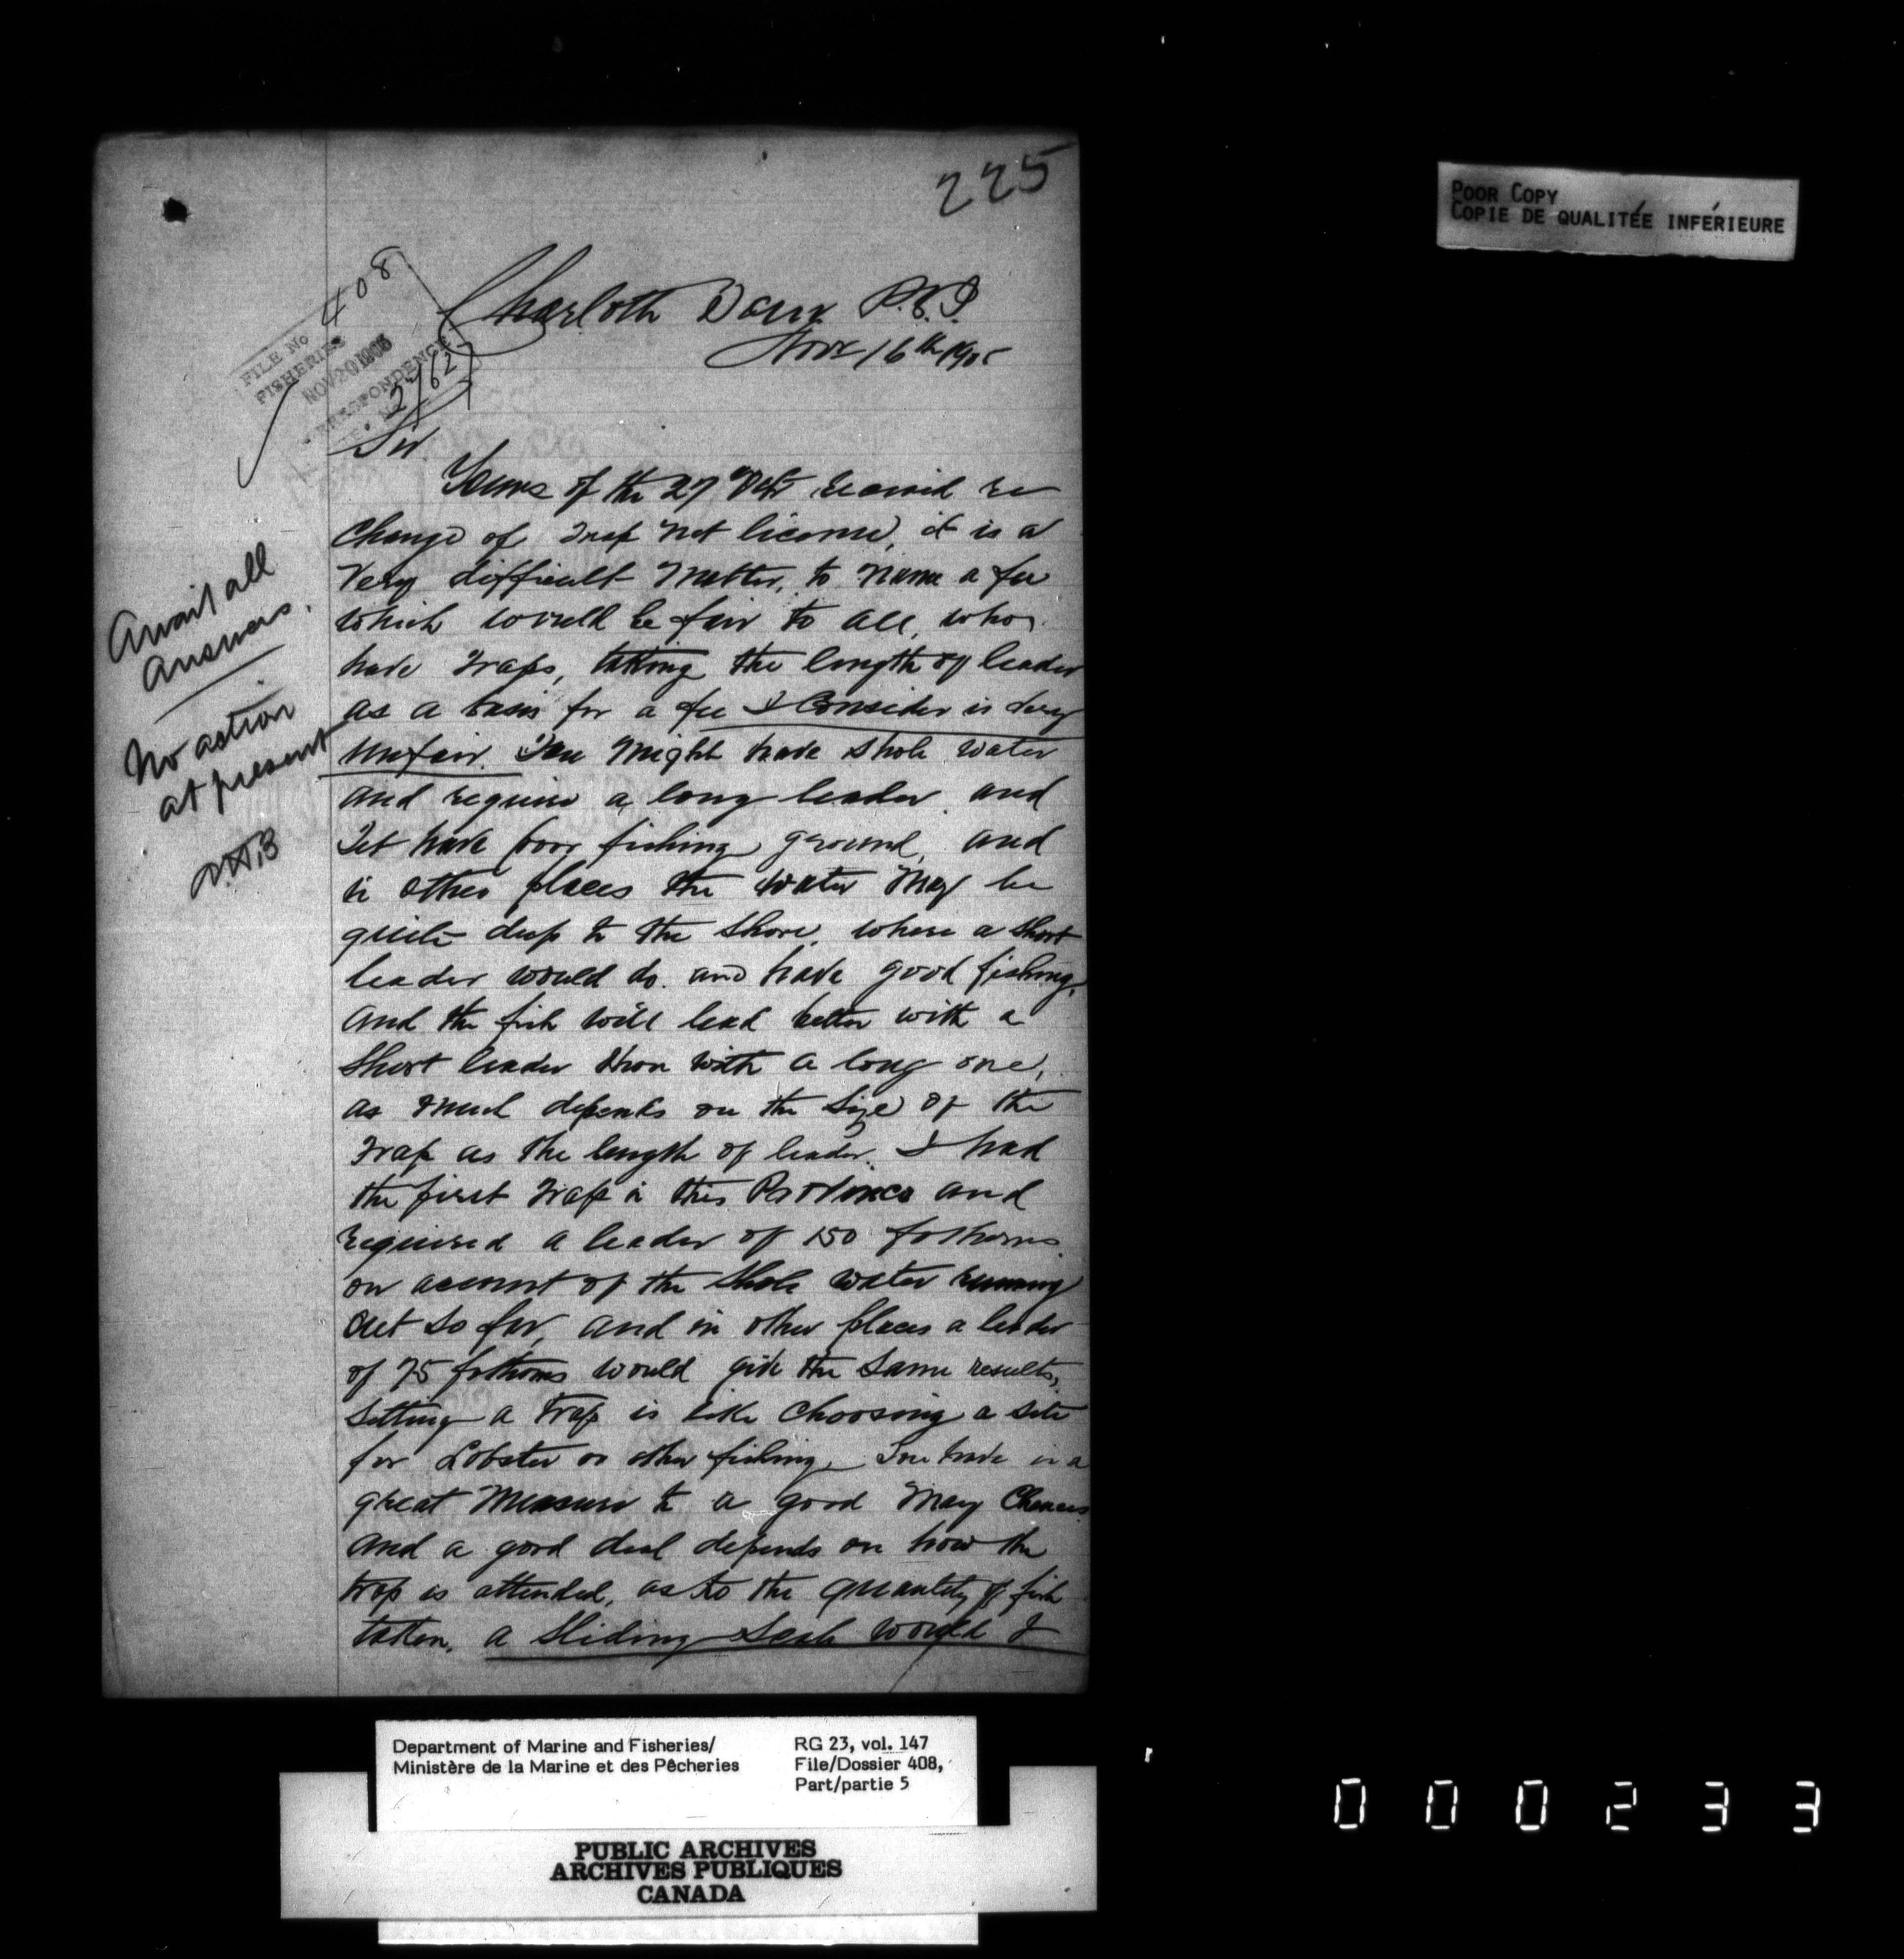 225
POOR COPY
COPIE DE QUALITÉE INFÉRIEURE
FILE No 408
FISHERIES
NOV 20 1905
CORRESPONDENCE
No 2762
Charloth Town P.E.I.
Nov 16th 1905
Sir
Yours of the 27 Oct received re
Change of Trap Net license, it is a
Very difficult Matter, to name a fee
which would be fair to all, who
have Traps, taking the length of leader
as a basis for a fee I Consider is very
unfair. You Might have Shole water
and require a long leader and
Yet have poor fishing ground, and
in other places the water May be
quite deep to the Shore, where a short
leader would do. and have good fishing,
and the fish will lead better with a
Short leader than with a long one,
as much depends on the size of the
Trap as the length of leader. I had
the first Trap in this Province and
required a leader of 150 fathoms
on account of the Shole water running
out so far, and in other places a leader
of 75 fathoms would give the same results,
Setting a Trap is like choosing a site
for Lobster or other fishing. You have in a
great Measure to a good Many Chances
and a good deal depends on how the
trap is attended, as to the quantity of fish
taken. a Sliding Scale would I
Await all
answers.
No action
at present
Department of Marine and Fisheries/
Ministère de la Marine et des Pêcheries
RG 23, vol. 147
File/Dossier 408,
Part/partie 5
PUBLIC ARCHIVES
ARCHIVES PUBLIQUES
CANADA
000233